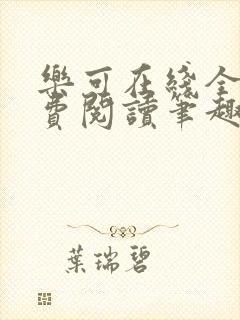 樂可在綫全
費閱讀筆趣
葉瑞碧